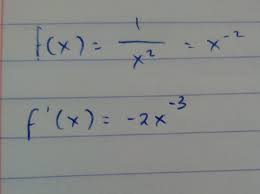 f(x) = 1/x² = x⁻²
f'(x) = -2x⁻³